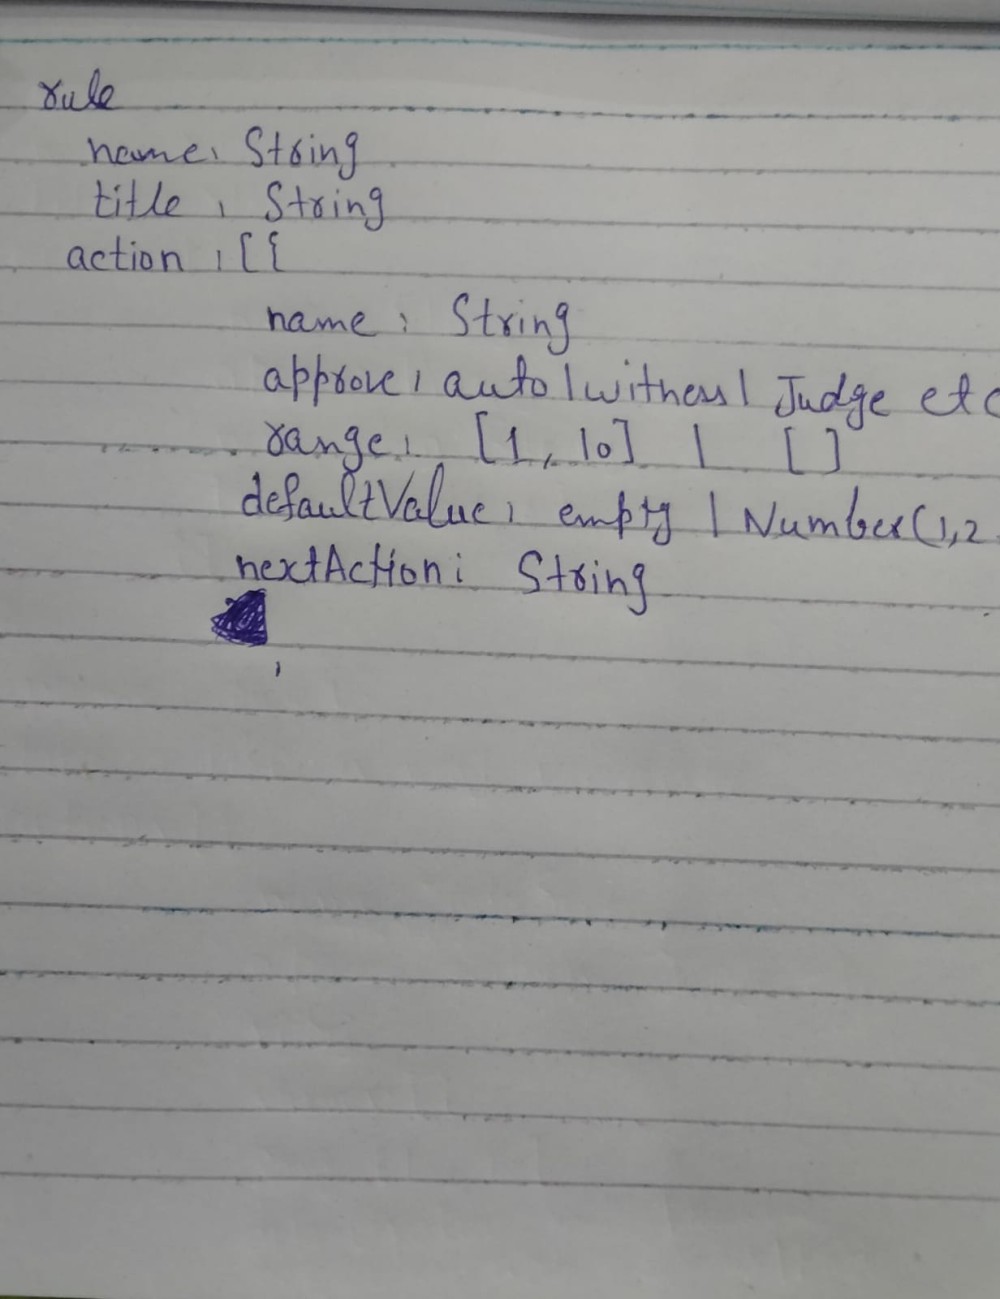 rule
name: String
title : String
action : [{
name : String
approve : auto | witness | Judge etc
range : [1, 10] | []
defaultValue : empty | Number(1,2
nextAction : String
,